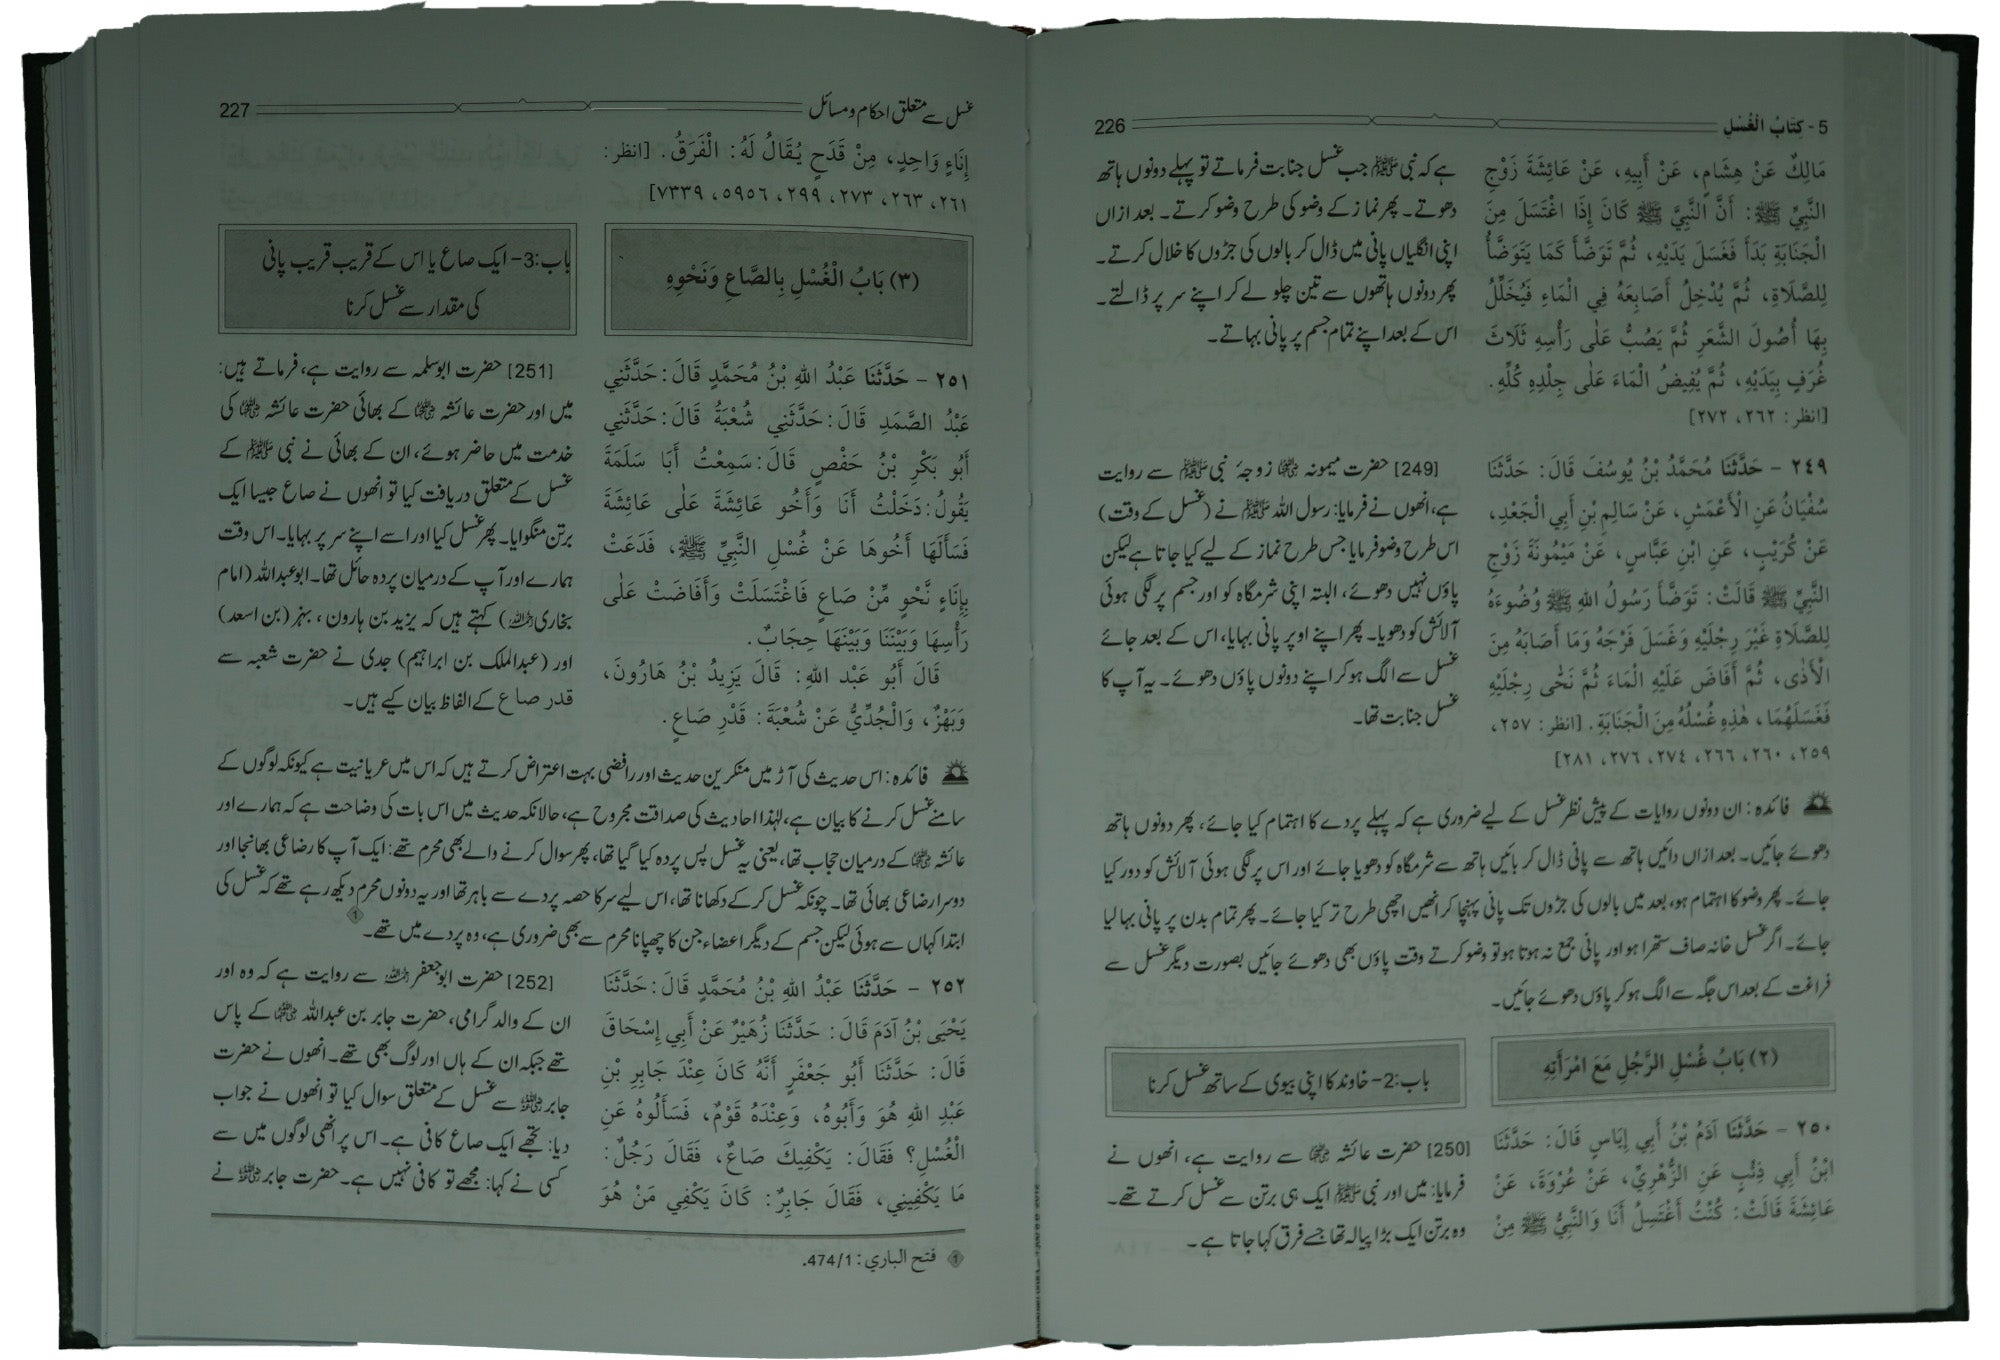 5 - كِتَابُ الْغُسْلِ
226
مَالِكٌ عَنْ هِشَامٍ، عَنْ أَبِيهِ، عَنْ عَائِشَةَ زَوْجِ
النَّبِيِّ ﷺ: أَنَّ النَّبِيَّ ﷺ كَانَ إِذَا اغْتَسَلَ مِنَ
الْجَنَابَةِ بَدَأَ فَغَسَلَ يَدَيْهِ، ثُمَّ تَوَضَّأَ كَمَا يَتَوَضَّأُ
لِلصَّلَاةِ، ثُمَّ يُدْخِلُ أَصَابِعَهُ فِي الْمَاءِ فَيُخَلِّلُ
بِهَا أُصُولَ الشَّعَرِ ثُمَّ يَصُبُّ عَلٰى رَأْسِهِ ثَلَاثَ
غُرَفٍ بِيَدَيْهِ، ثُمَّ يُفِيضُ الْمَاءَ عَلٰى جِلْدِهِ كُلِّهِ.
[انظر: ٢٦٢، ٢٧٢]
ہے کہ نبی ﷺ جب غسل جنابت فرماتے تو پہلے دونوں ہاتھ
دھوتے۔ پھر نماز کے وضو کی طرح وضو کرتے۔ بعد ازاں
اپنی انگلیاں پانی میں ڈال کر بالوں کی جڑوں کا خلال کرتے۔
پھر دونوں ہاتھوں سے تین چلو لے کر اپنے سر پر ڈالتے۔
اس کے بعد اپنے تمام جسم پر پانی بہاتے۔
٢٤٩ - حَدَّثَنَا مُحَمَّدُ بْنُ يُوسُفَ قَالَ: حَدَّثَنَا
سُفْيَانُ عَنِ الْأَعْمَشِ، عَنْ سَالِمِ بْنِ أَبِي الْجَعْدِ،
عَنْ كُرَيْبٍ، عَنِ ابْنِ عَبَّاسٍ، عَنْ مَيْمُونَةَ زَوْجِ
النَّبِيِّ ﷺ قَالَتْ: تَوَضَّأَ رَسُولُ اللهِ ﷺ وُضُوءَهُ
لِلصَّلَاةِ غَيْرَ رِجْلَيْهِ وَغَسَلَ فَرْجَهُ وَمَا أَصَابَهُ مِنَ
الْأَذٰى، ثُمَّ أَفَاضَ عَلَيْهِ الْمَاءَ ثُمَّ نَحّٰى رِجْلَيْهِ
فَغَسَلَهُمَا، هٰذِهِ غُسْلُهُ مِنَ الْجَنَابَةِ. [انظر: ٢٥٧،
٢٥٩، ٢٦٠، ٢٦٦، ٢٧٤، ٢٧٦، ٢٨١]
[249] حضرت میمونہ ؓ زوجۂ نبی ﷺ سے روایت
ہے، انھوں نے فرمایا: رسول اللہ ﷺ نے (غسل کے وقت)
اس طرح وضو فرمایا جس طرح نماز کے لیے کیا جاتا ہے لیکن
پاؤں نہیں دھوئے، البتہ اپنی شرمگاہ کو اور جسم پر لگی ہوئی
آلائش کو دھویا۔ پھر اپنے اوپر پانی بہایا، اس کے بعد جائے
غسل سے الگ ہو کر اپنے دونوں پاؤں دھوئے۔ یہ آپ کا
غسل جنابت تھا۔
فائدہ: ان دونوں روایات کے پیش نظر غسل کے لیے ضروری ہے کہ پہلے پردے کا اہتمام کیا جائے، پھر دونوں ہاتھ
دھوئے جائیں۔ بعد ازاں دائیں ہاتھ سے پانی ڈال کر بائیں ہاتھ سے شرمگاہ کو دھویا جائے اور اس پر لگی ہوئی آلائش کو دور کیا
جائے۔ پھر وضو کا اہتمام ہو، بعد میں بالوں کی جڑوں تک پانی پہنچا کر انھیں اچھی طرح تر کیا جائے۔ پھر تمام بدن پر پانی بہا لیا
جائے۔ اگر غسل خانہ صاف ستھرا ہو اور پانی جمع نہ ہوتا ہو تو وضو کرتے وقت پاؤں بھی دھوئے جائیں بصورت دیگر غسل سے
فراغت کے بعد اس جگہ سے الگ ہو کر پاؤں دھوئے جائیں۔
(٢) بَابُ غُسْلِ الرَّجُلِ مَعَ امْرَأَتِهِ
باب:2- خاوند کا اپنی بیوی کے ساتھ غسل کرنا
٢٥٠ - حَدَّثَنَا آدَمُ بْنُ أَبِي إِيَاسٍ قَالَ: حَدَّثَنَا
ابْنُ أَبِي ذِئْبٍ عَنِ الزُّهْرِيِّ، عَنْ عُرْوَةَ، عَنْ
عَائِشَةَ قَالَتْ: كُنْتُ أَغْتَسِلُ أَنَا وَالنَّبِيُّ ﷺ مِنْ
[250] حضرت عائشہ ؓ سے روایت ہے، انھوں نے
فرمایا: میں اور نبی ﷺ ایک ہی برتن سے غسل کرتے تھے۔
وہ برتن ایک بڑا پیالہ تھا جسے فرق کہا جاتا ہے۔
غسل سے متعلق احکام و مسائل
227
إِنَاءٍ وَاحِدٍ، مِنْ قَدَحٍ يُقَالُ لَهُ: الْفَرَقُ. [انظر:
٢٦١، ٢٦٣، ٢٧٣، ٢٩٩، ٥٩٥٦، ٧٣٣٩]
(٣) بَابُ الْغُسْلِ بِالصَّاعِ وَنَحْوِهِ
باب:3- ایک صاع یا اس کے قریب قریب پانی
کی مقدار سے غسل کرنا
٢٥١ - حَدَّثَنَا عَبْدُ اللهِ بْنُ مُحَمَّدٍ قَالَ: حَدَّثَنِي
عَبْدُ الصَّمَدِ قَالَ: حَدَّثَنِي شُعْبَةُ قَالَ: حَدَّثَنِي
أَبُو بَكْرِ بْنُ حَفْصٍ قَالَ: سَمِعْتُ أَبَا سَلَمَةَ
يَقُولُ: دَخَلْتُ أَنَا وَأَخُو عَائِشَةَ عَلٰى عَائِشَةَ
فَسَأَلَهَا أَخُوهَا عَنْ غُسْلِ النَّبِيِّ ﷺ، فَدَعَتْ
بِإِنَاءٍ نَّحْوٍ مِّنْ صَاعٍ فَاغْتَسَلَتْ وَأَفَاضَتْ عَلٰى
رَأْسِهَا وَبَيْنَنَا وَبَيْنَهَا حِجَابٌ.
قَالَ أَبُو عَبْدِ اللهِ: قَالَ يَزِيدُ بْنُ هَارُونَ،
وَبَهْزٌ، وَالْجُدِّيُّ عَنْ شُعْبَةَ: قَدْرِ صَاعٍ.
[251] حضرت ابوسلمہ سے روایت ہے، فرماتے ہیں:
میں اور حضرت عائشہ ؓ کے بھائی حضرت عائشہ ؓ کی
خدمت میں حاضر ہوئے، ان کے بھائی نے نبی ﷺ کے
غسل کے متعلق دریافت کیا تو انھوں نے صاع جیسا ایک
برتن منگوایا۔ پھر غسل کیا اور اسے اپنے سر پر بہایا۔ اس وقت
ہمارے اور آپ کے درمیان پردہ حائل تھا۔ ابوعبداللہ (امام
بخاری ؒ) کہتے ہیں کہ یزید بن ہارون، بہز (بن اسعد)
اور (عبدالملک بن ابراہیم) جدی نے حضرت شعبہ سے
قدر صاع کے الفاظ بیان کیے ہیں۔
فائدہ: اس حدیث کی آڑ میں منکرین حدیث اور رافضی بہت اعتراض کرتے ہیں کہ اس میں عریانیت ہے کیونکہ لوگوں کے
سامنے غسل کرنے کا بیان ہے، لہٰذا احادیث کی صداقت مجروح ہے، حالانکہ حدیث میں اس بات کی وضاحت ہے کہ ہمارے اور
عائشہ ؓ کے درمیان حجاب تھا، یعنی یہ غسل پس پردہ کیا گیا تھا، پھر سوال کرنے والے بھی محرم تھے: ایک آپ کا رضاعی بھانجا اور
دوسرا رضاعی بھائی تھا۔ چونکہ غسل کر کے دکھانا تھا، اس لیے سر کا حصہ پردے سے باہر تھا اور یہ دونوں محرم دیکھ رہے تھے کہ غسل کی
ابتدا کہاں سے ہوئی لیکن جسم کے دیگر اعضاء جن کا چھپانا محرم سے بھی ضروری ہے، وہ پردے میں تھے۔ 1
٢٥٢ - حَدَّثَنَا عَبْدُ اللهِ بْنُ مُحَمَّدٍ قَالَ: حَدَّثَنَا
يَحْيَى بْنُ آدَمَ قَالَ: حَدَّثَنَا زُهَيْرٌ عَنْ أَبِي إِسْحَاقَ
قَالَ: حَدَّثَنَا أَبُو جَعْفَرٍ أَنَّهُ كَانَ عِنْدَ جَابِرِ بْنِ
عَبْدِ اللهِ هُوَ وَأَبُوهُ، وَعِنْدَهُ قَوْمٌ، فَسَأَلُوهُ عَنِ
الْغُسْلِ؟ فَقَالَ: يَكْفِيكَ صَاعٌ، فَقَالَ رَجُلٌ:
مَا يَكْفِينِي، فَقَالَ جَابِرٌ: كَانَ يَكْفِي مَنْ هُوَ
[252] حضرت ابوجعفر ؒ سے روایت ہے کہ وہ اور
ان کے والد گرامی، حضرت جابر بن عبداللہ ؓ کے پاس
تھے جبکہ ان کے ہاں اور لوگ بھی تھے۔ انھوں نے حضرت
جابر ؓ سے غسل کے متعلق سوال کیا تو انھوں نے جواب
دیا: تجھے ایک صاع کافی ہے۔ اس پر انھی لوگوں میں سے
کسی نے کہا: مجھے تو کافی نہیں ہے۔ حضرت جابر ؓ نے
1 فتح الباري: 474/1.